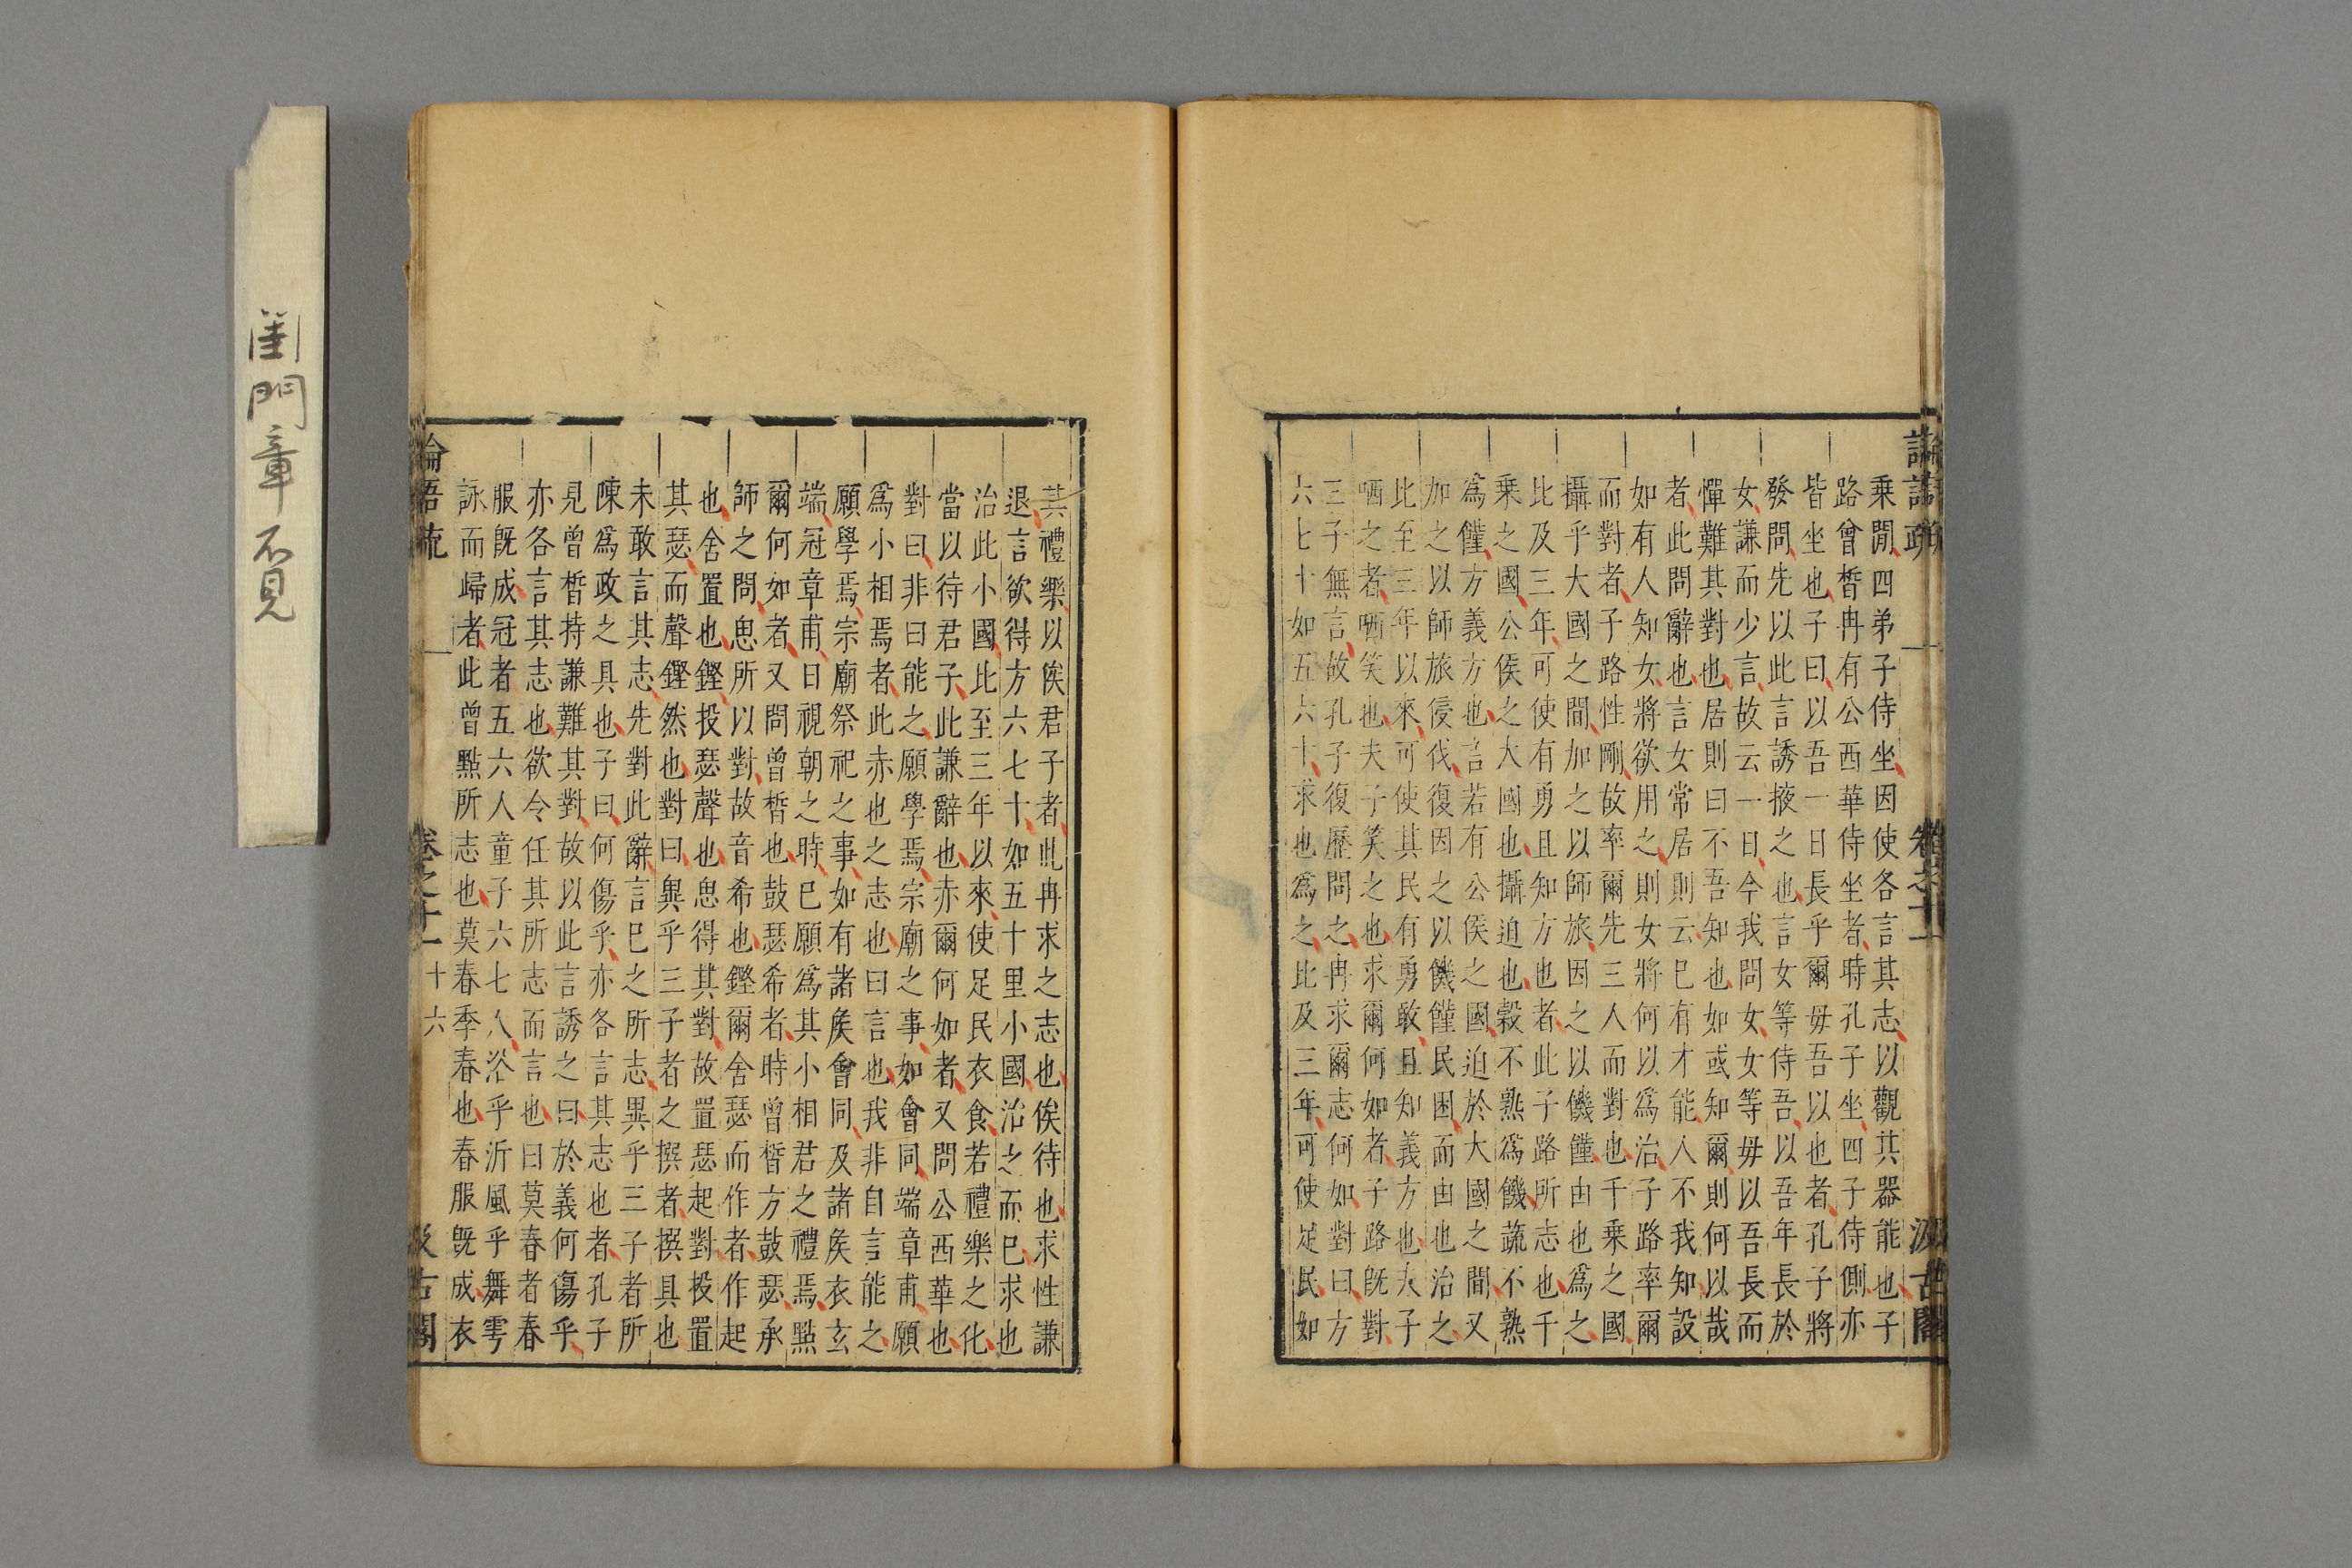 乘閒四弟子侍坐因使各言其志以觀其器能也子
路曾皙冉有公西華侍坐者時孔子坐四子侍側亦
皆坐也子曰以吾一日長乎爾毋吾以也者孔子將
發問先以此言誘掖之也言女等侍吾以吾年長於
女謙而少言故云一日今我問女女等毋以吾長而
憚難其對也居則曰不吾知也如或知爾則何以哉
者此問辭也言女常居則云巳有才能人不我知設
如有人知女將欲用之則女將何以爲治子路率爾
而對者子路性剛故率爾先三人而對也千乘之國
攝乎大國之間加之以師旅因之以饑饉由也爲之
比及三年可使有勇且知方也者此子路所志也千
乘之國公侯之大國也攝迫也穀不熟爲饑蔬不熟
爲饉方義方也言若有公侯之國迫於大國之間又
加之以師旅侵伐復因之以饑饉民困而由也治之
比至三年以來可使其民有勇敢且知義方也夫子
哂之者哂笑也夫子笑之也求爾何如者子路旣對
三子無言故孔子復歷問之冉求爾志何如對曰方
六七十如五六十求也爲之比及三年可使足民如
其禮樂以俟君子者此冉求之志也俟待也求性謙
退言欲得方六七十如五十里小國治之而巳求也
治此小國比至三年以來使足民衣食若禮樂之化
當以待君子此謙辭也赤爾何如者又問公西華也
對曰非曰能之願學焉宗廟之事如會同端章甫願
爲小相焉者此赤也之志也曰言也我非自言能之
願學焉宗廟祭祀之事如有諸侯會同及諸侯衣玄
端冠章甫日視朝之時巳願爲其小相君之禮焉點
爾何如者又問曾皙也鼓瑟希者時曾皙方鼓瑟承
師之問思所以對故音希也鏗爾舍瑟而作者作起
也舍置也鏗投瑟聲也思得其對故置瑟起對投置
其瑟而聲鏗然也對曰異乎三子者之撰者撰具也
未敢言其志先對此辭言巳之所志異乎三子者所
陳爲政之具也子曰何傷乎亦各言其志也者孔子
見曾皙持謙難其對故以此言誘之曰於義何傷乎
亦各言其志也欲令任其所志而言也曰莫春者春
服旣成冠者五六人童子六七人浴乎沂風乎舞雩
詠而歸者此曾點所志也莫春季春也春服旣成衣
論語疏 卷之十一 十六 汲古閣
閨門章不見